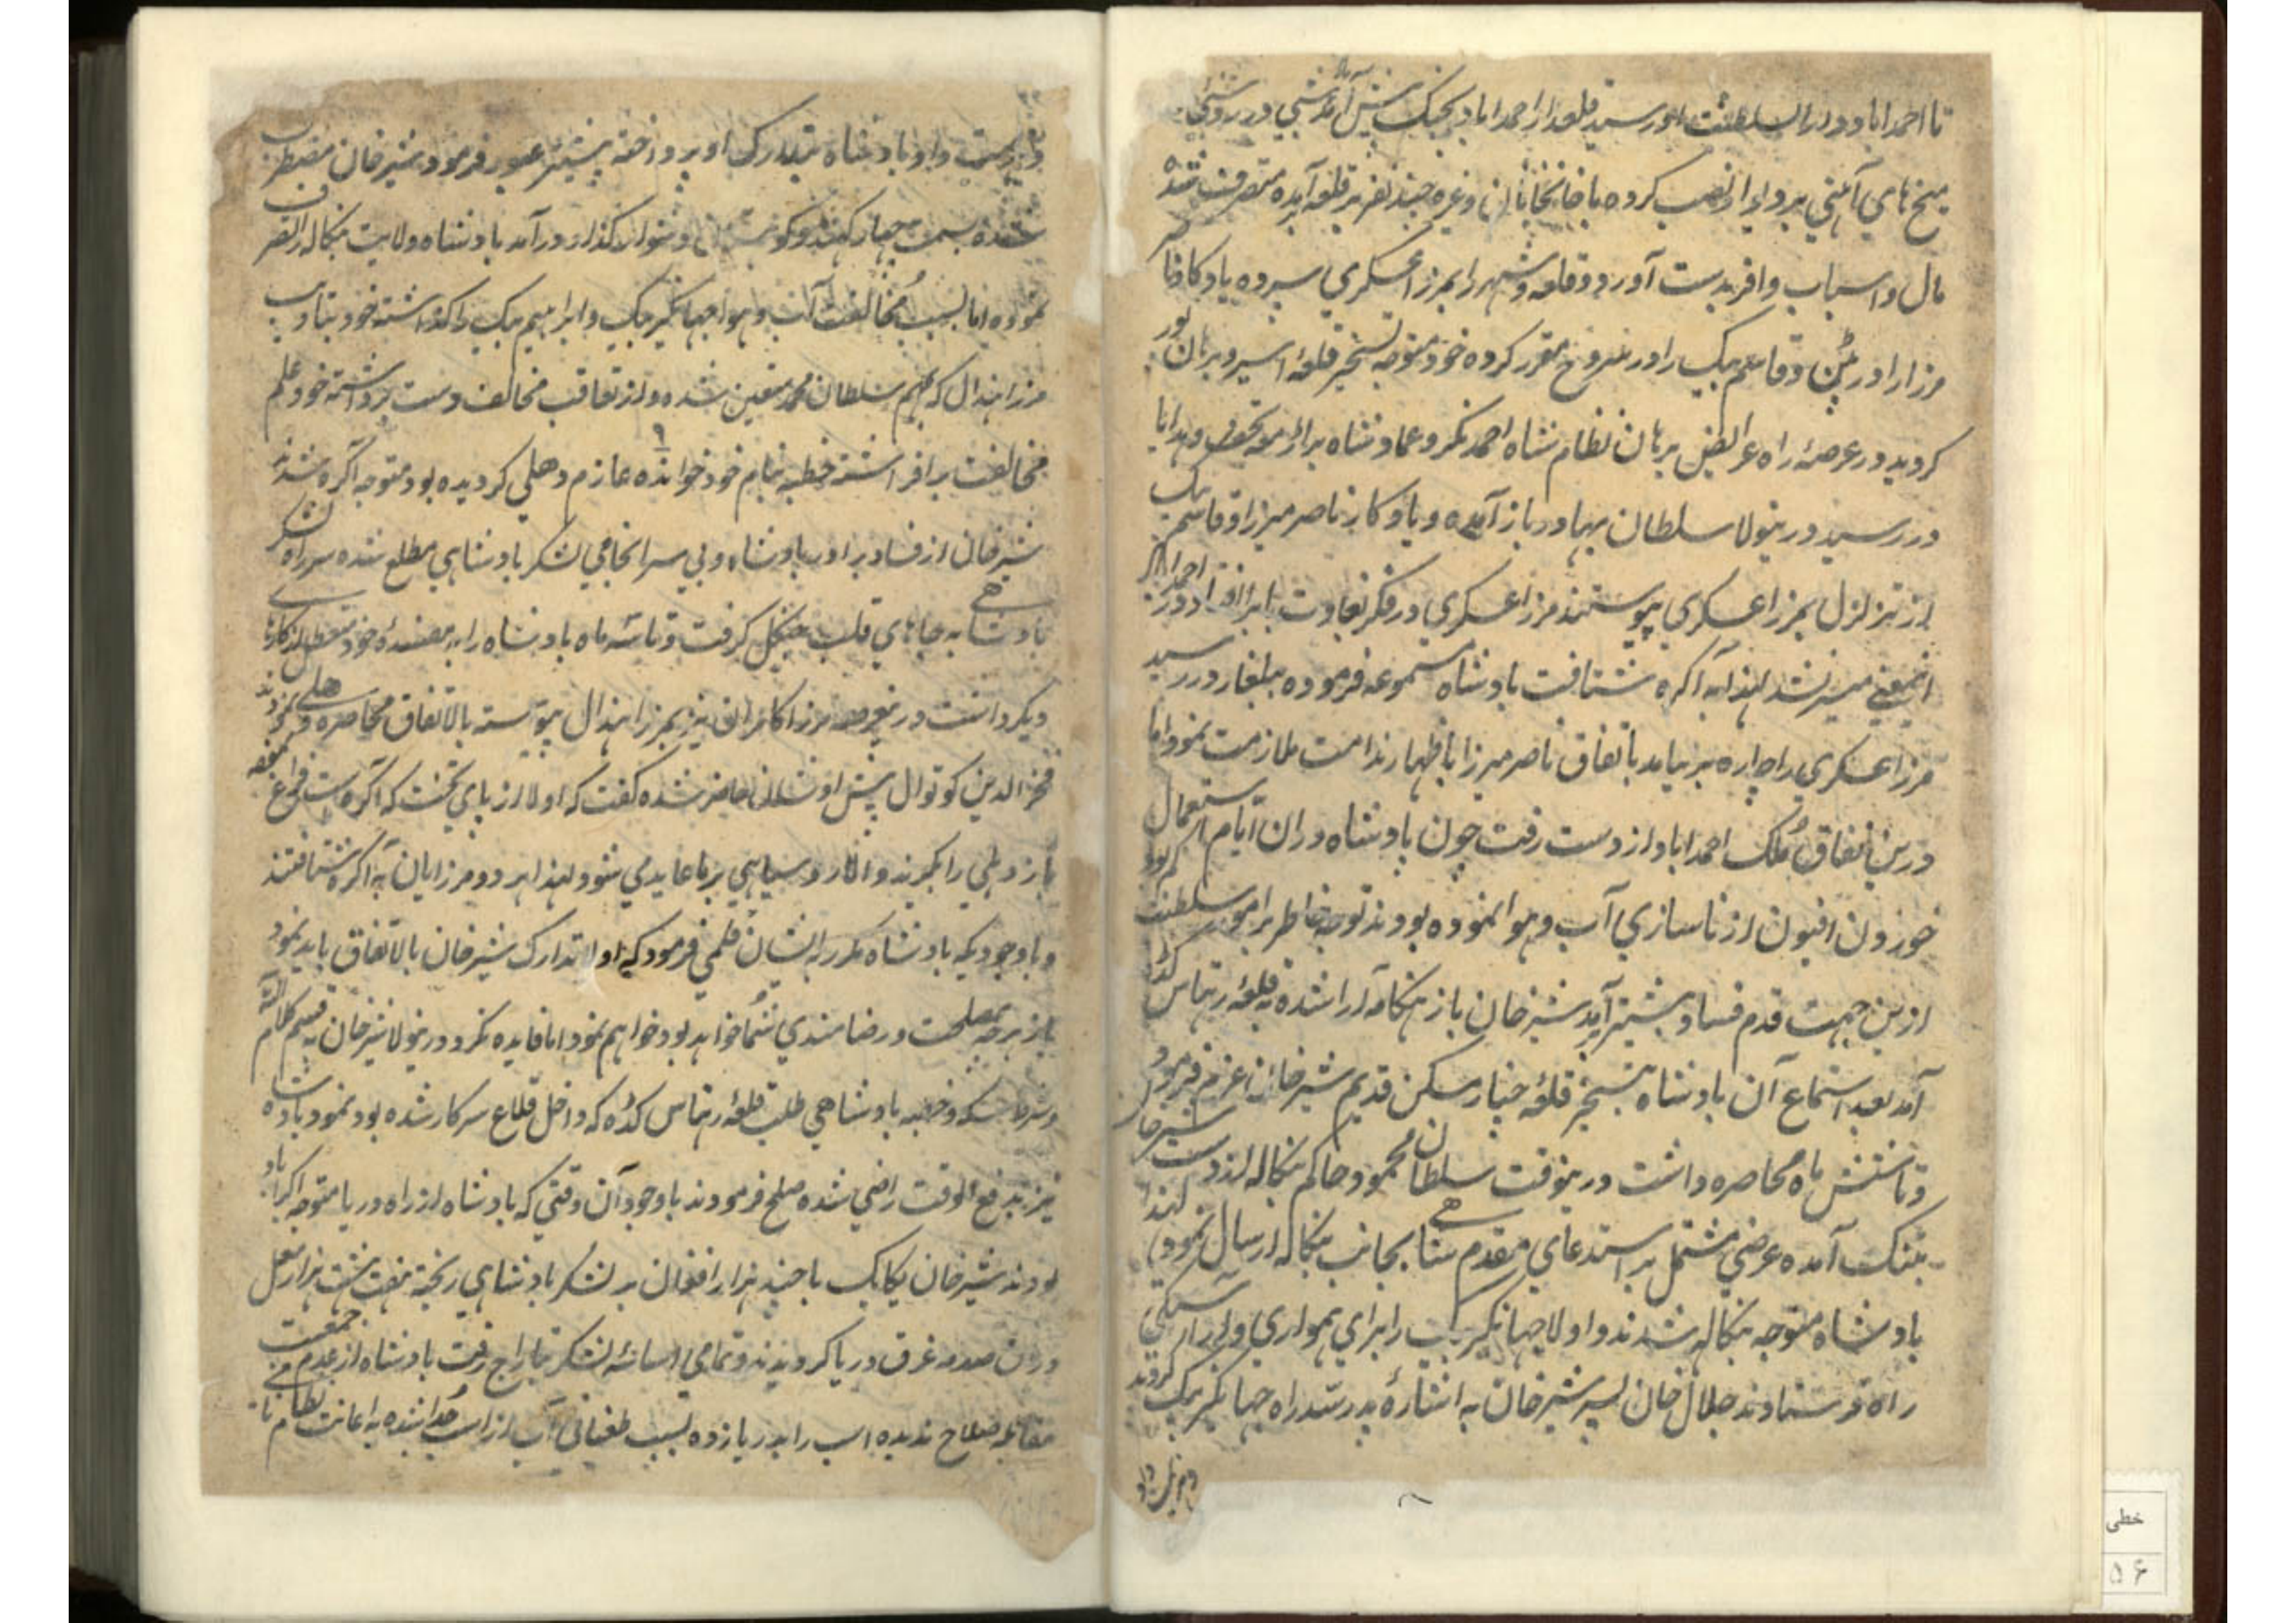 تا احمداباد و دارالسلطنت او رسید قلعدار احمداباد بجنگ پیش آمد شبی در روشنی
میخ های آهنی بر دیوار نصب کرده با خانخانان و غیره چند نفر بر قلعه آمده متصرف شده
مال و اسباب وافر بدست آورد و قلعه و شهر را بمرزا عسکری سپرده یادکار ناصر
مرزا را در پتن و قاسم بیک را در بهروج مقرر کرده خود متوجه تسخیر قلعه اسیر و برهان پور
کردید در عرصهٔ راه عرایض برهان نظام شاه احمدنکر و عماد شاه برار مع تحف و هدایا
در رسید درینولا سلطان بهادر باز آمده و یادکار ناصر میرزا و قاسم بیک
از تزلزل بمرزا عسکری پیوستند مرزا عسکری در فکر بغاوت
میسر نشد لهذا به آکره شتافت بادشاه مسموعه فرموده یلغار در رسید
مرزا عسکری را چاره بر نیامد باتفاق ناصر میرزا باظهار ندامت ملازمت نمود اما
درین نفاق ملک احمداباد از دست رفت چون بادشاه دران ایام استعمال
خوردن افیون از ناسازی آب و هوا نموده بودند توجه خاطر بر امور سلطنت کم بود
ازین جهت قدم فساد بیشتر آمد شیرخان باز هنکامه آرا شده به قلعهٔ رهتاس کده
آمد بعد استماع آن بادشاه بتسخیر قلعهٔ چنار مسکن قدیم شیرخان عزم فرمود
و تا شش ماه محاصره داشت درینوقت سلطان محمود حاکم بنکاله از دست شیرخان
بتنک آمده عرضی مشتمل بر استدعای مقدم شاهی بجانب بنکاله ارسال نمود لهذا
بادشاه متوجه بنکاله شدند و اولا جهانکیر بیک را برای همواری
راه فرستادند جلال خان پسر شیرخان به اشارهٔ پدر سد راه جهانکیر بیک کردید
داو بادشاه بتدارک او پرداخته پیشتر عبور فرمود شیرخان مضطرب
شده بسمت جهارکهند و کوهستان دشوار کذار در آمد بادشاه ولایت بنکاله را تصرف
نموده اما بسبب مخالفت آب و هوا جهانکیر بیک و ابراهیم بیک را کذاشته خود
مرزا هندال که بمهم سلطان محمد متعین شده و از تعاقب مخالف دست برداشته خود علم
مخالفت برافراشته خطبه بنام خود خوانده عازم دهلی کردیده بود متوجه آکره شدند
شیرخان از فساد برادر بادشاه و بی سرانجامی لشکر بادشاهی مطلع شده سر راه لشکر
بادشاهی به جاهای قلب جنکل کرفت و تا سه ماه بادشاه را به مفسدهٔ خود معطل از کارها
دیکر داشت درینعرصه مرزا کامران نیز بمرزا هندال پیوسته بالاتفاق محاصره دهلی نمودند
فخرالدین کوتوال پیش اوشان حاضر شده کفت که اولا از پای تخت که آکره است
باز دهلی را بکیرند و الا رو سیاهی بر ما عاید می شود لهذا هر دو مرزایان به آکره شتافتند
و باوجودیکه بادشاه مکرر به ایشان قلمی فرمود که اولا تدارک شیرخان بالاتفاق باید نمود
باز هرچه مصلحت و رضامندی شما خواهد بود خواهم نمود اما فایده نکرد درینولا شیرخان به قسم کلام الله
و شرط سکه و خطبه بادشاهی طلب قلعهٔ رهتاس کده که داخل قلاع سرکار شده بود نمود بادشاه
نیز بدفع الوقت راضی شده صلح فرمودند باوجود آن وقتی که بادشاه از راه دریا متوجه اکبراباد
بودند شیرخان یکایک با چند هزار افغان بر لشکر بادشاهی ریخته هفت هشت هزار مغل
دران صدمه غرق دریا کردیدند و تمامی اساسهٔ لشکر بتاراج رفت بادشاه از عدم جمعیت
مقابله صلاح ندیده اسب را بدریا زده بسبب طغیانی آب از اسب جدا شده به اعانت نظام نامی
خطی
۵۶